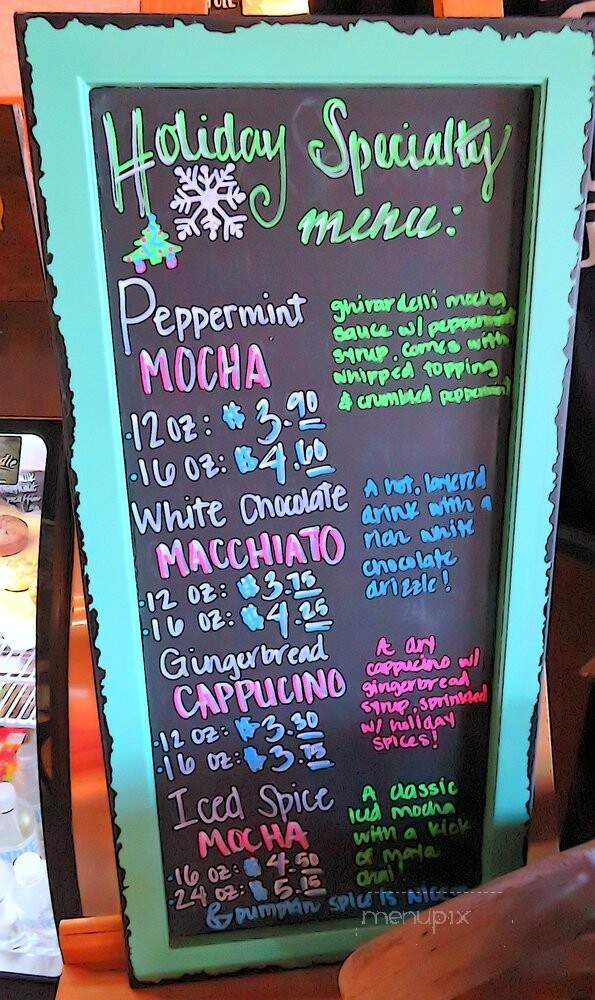 Holiday Specialty
menu:
Peppermint
MOCHA
.12oz: $3.90
.16 oz: $4.60
ghirardelli mocha
sauce w/ peppermint
syrup. comes with
whipped topping
& crumbled peppermint
White Chocolate
MACCHIATO
.12 oz: $3.75
.16 oz: $4.25
A hot, layered
drink with a
rich white
chocolate
drizzle!
Gingerbread
CAPPUCINO
.12 oz: $3.30
.16 oz: $3.75
A dry
cappucino w/
gingerbread
syrup, sprinkled
w/ holiday
spices!
Iced Spice
MOCHA
.16 oz: $4.50
.24 oz: $5.15
A classic
iced mocha
with a kick
of
& pumpkin spice is
menupix